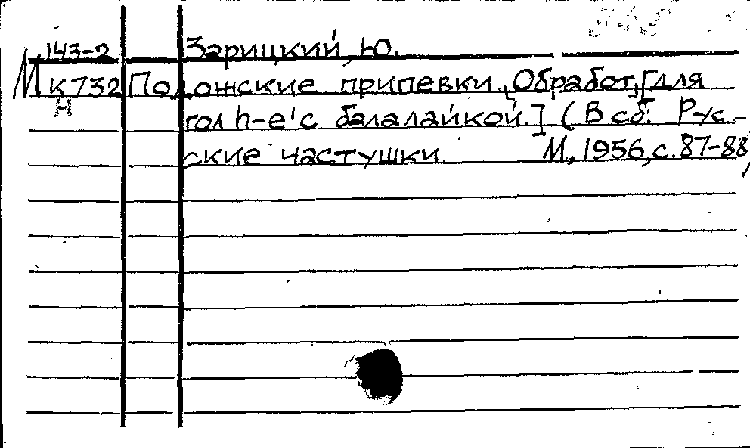 143-2 Зарицкий, Ю.
М К 732 Положские припевки. Обработ. [для
Н гол h-e' с балалайкой.] (В сб. Рус-
ские частушки. М., 1956, с. 87-88